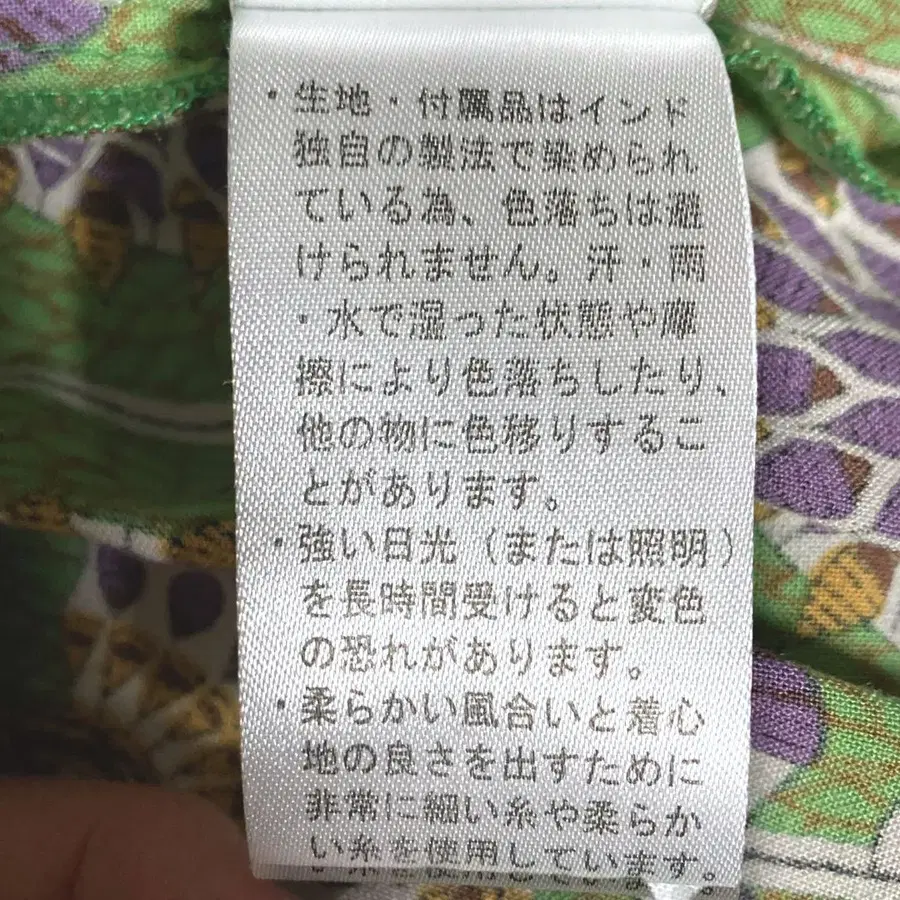 ・生地・付属品はインド
独自の製法で染められ
ている為、色落ちは避
けられません。汗・雨
・水で湿った状態や摩
擦により色落ちしたり、
他の物に色移りするこ
とがあります。
・強い日光（または照明）
を長時間受けると変色
の恐れがあります。
・柔らかい風合いと着心
地の良さを出すために
非常に細い糸や柔らか
い糸を使用しています。